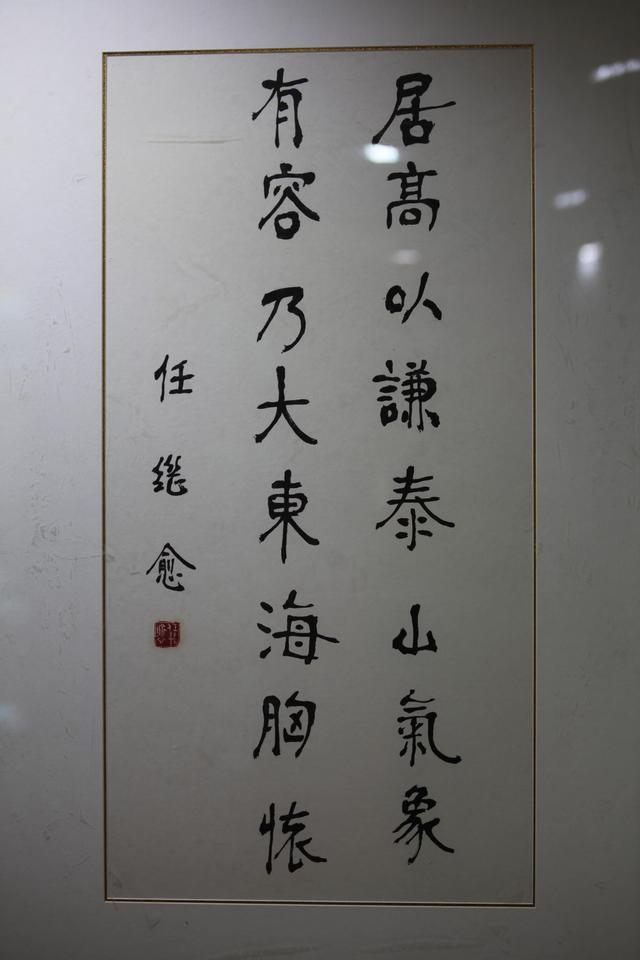 居高以謙泰山氣象
有容乃大東海胸懷
任继愈